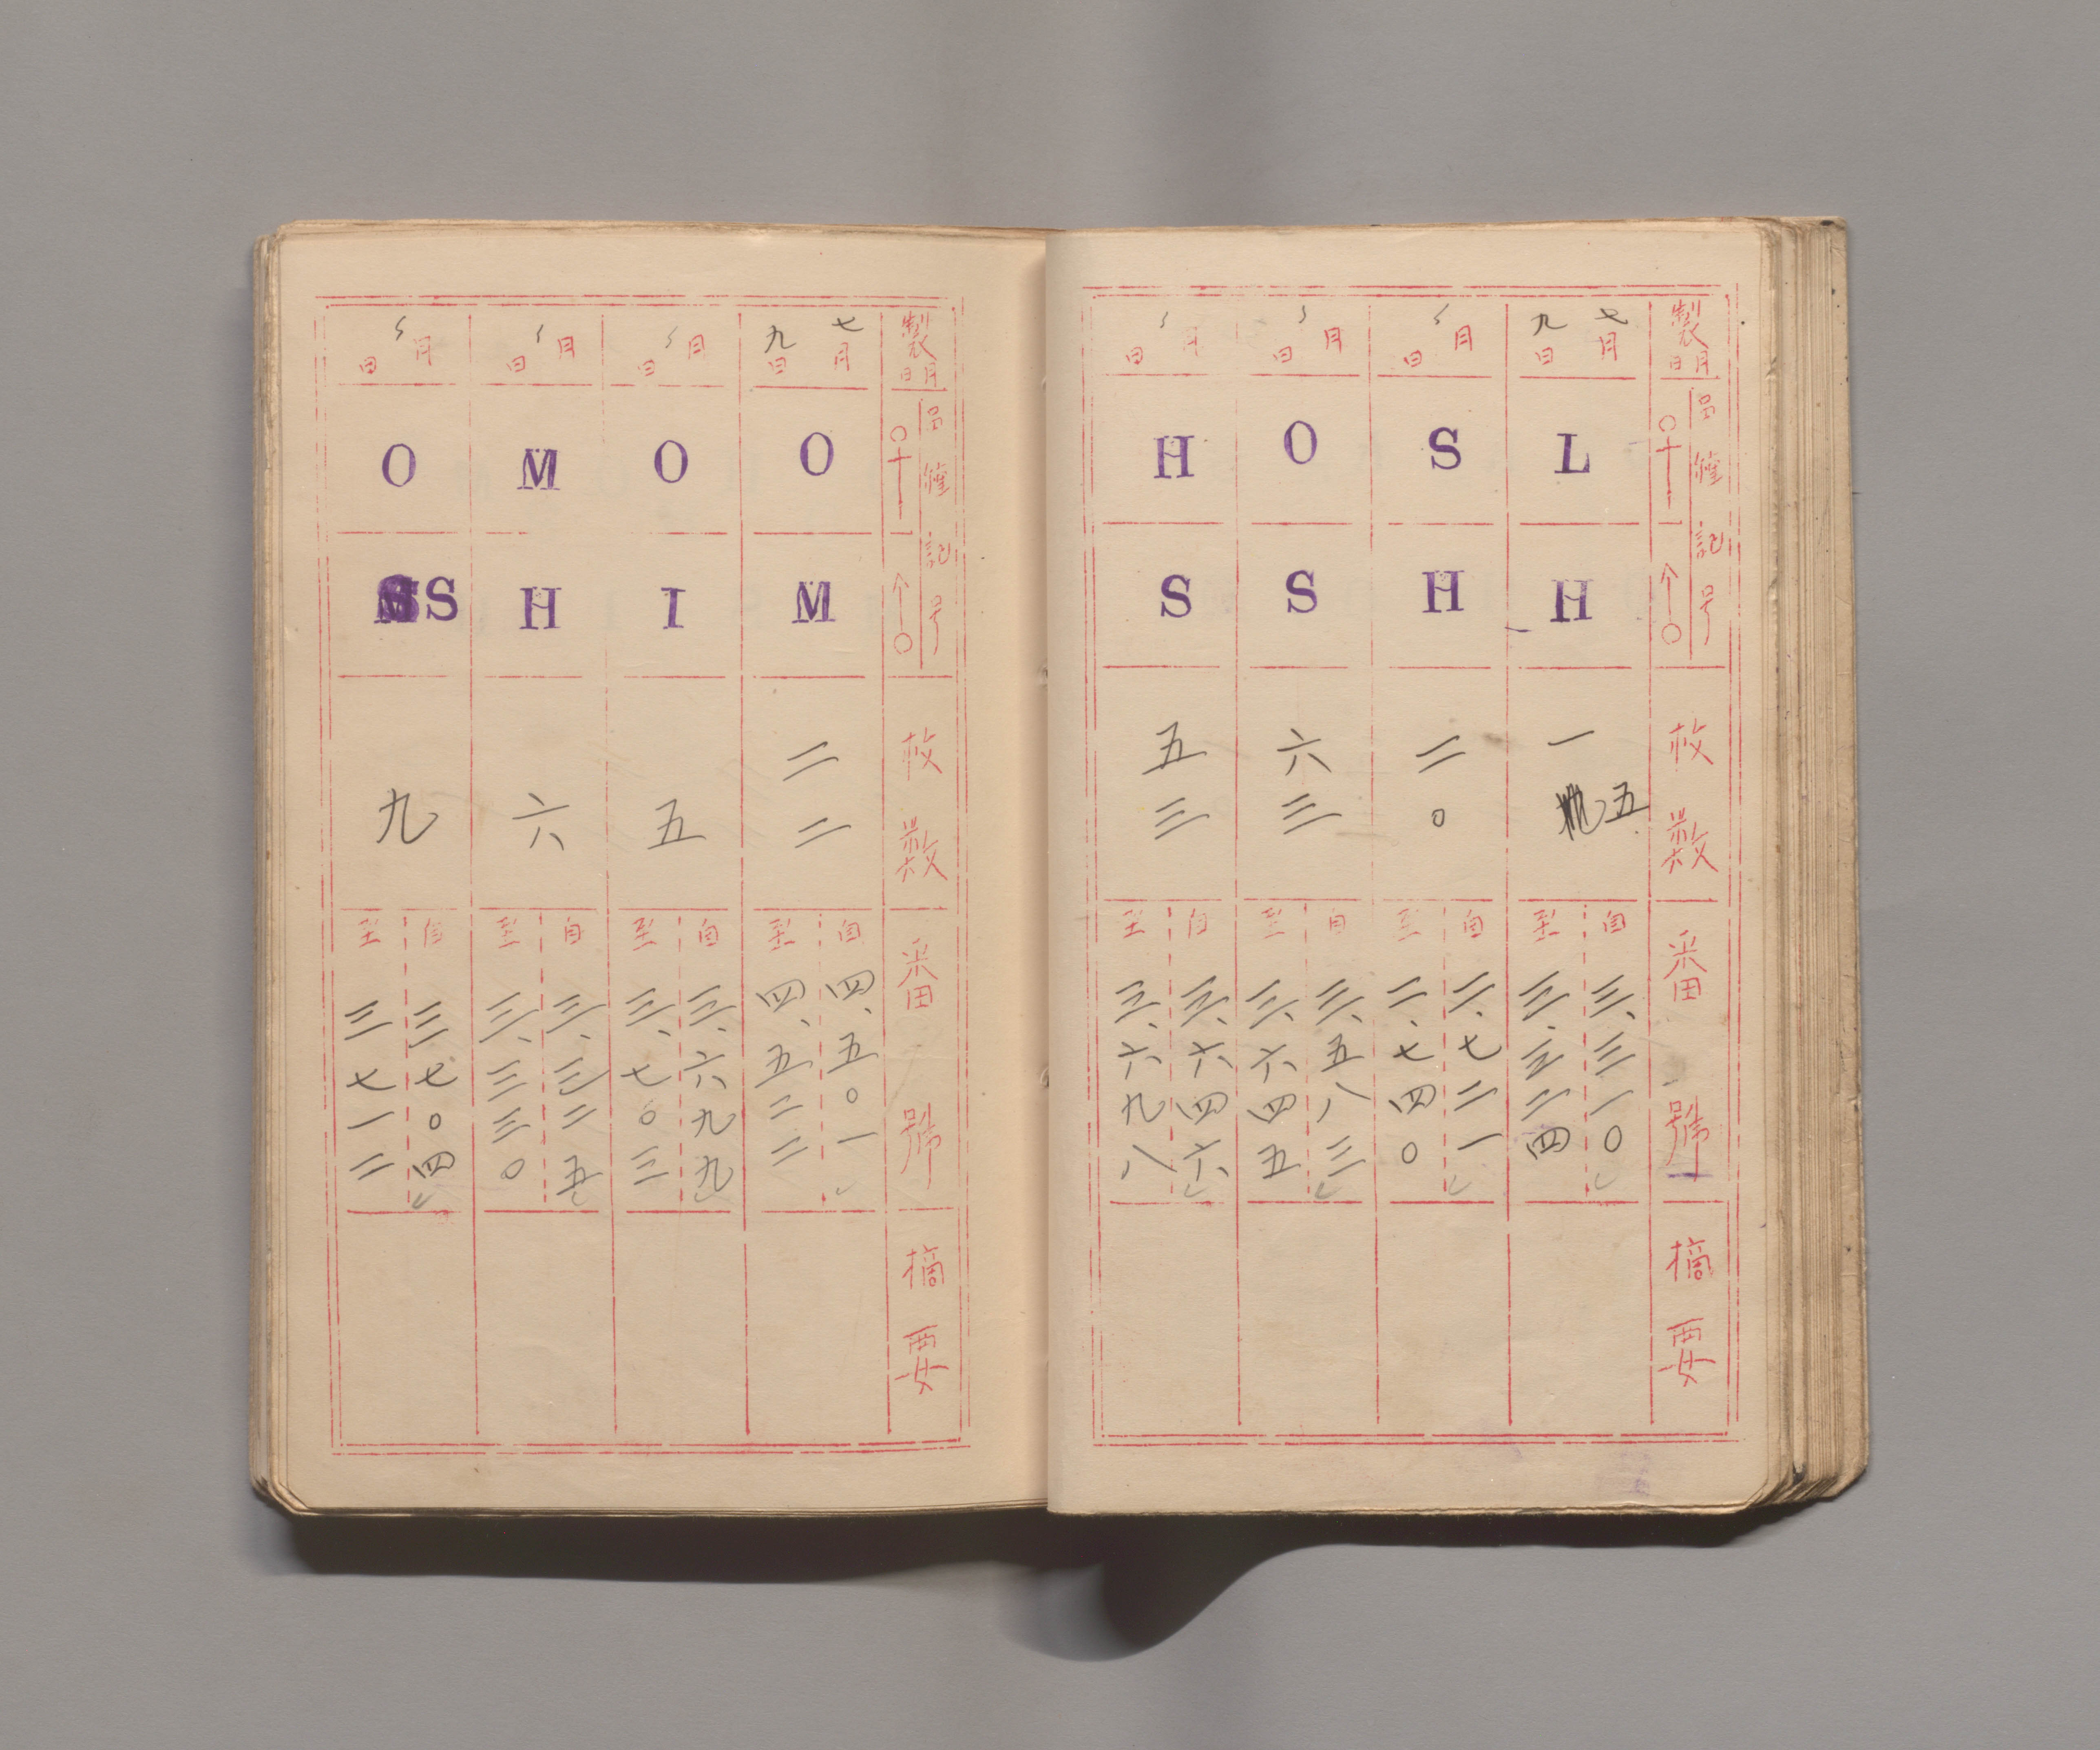 製月日
記号
枚數
番號
摘要
七月九日
L
H
一五
自三、三一〇
至三、三二四
月日
S
H
二〇
自二、七二一
至二、七四〇
月日
O
S
六三
自三、五八三
至三、六四五
月日
H
S
五三
自三、六四六
至三、六九八
製月日
記号
枚數
番號
摘要
七月九日
O
M
二二
自四、五〇一
至四、五二二
月日
O
I
五
自三、六九九
至三、七〇三
月日
M
H
六
自三、三二五
至三、三三〇
月日
O
S
九
自三七〇四
至三七一二